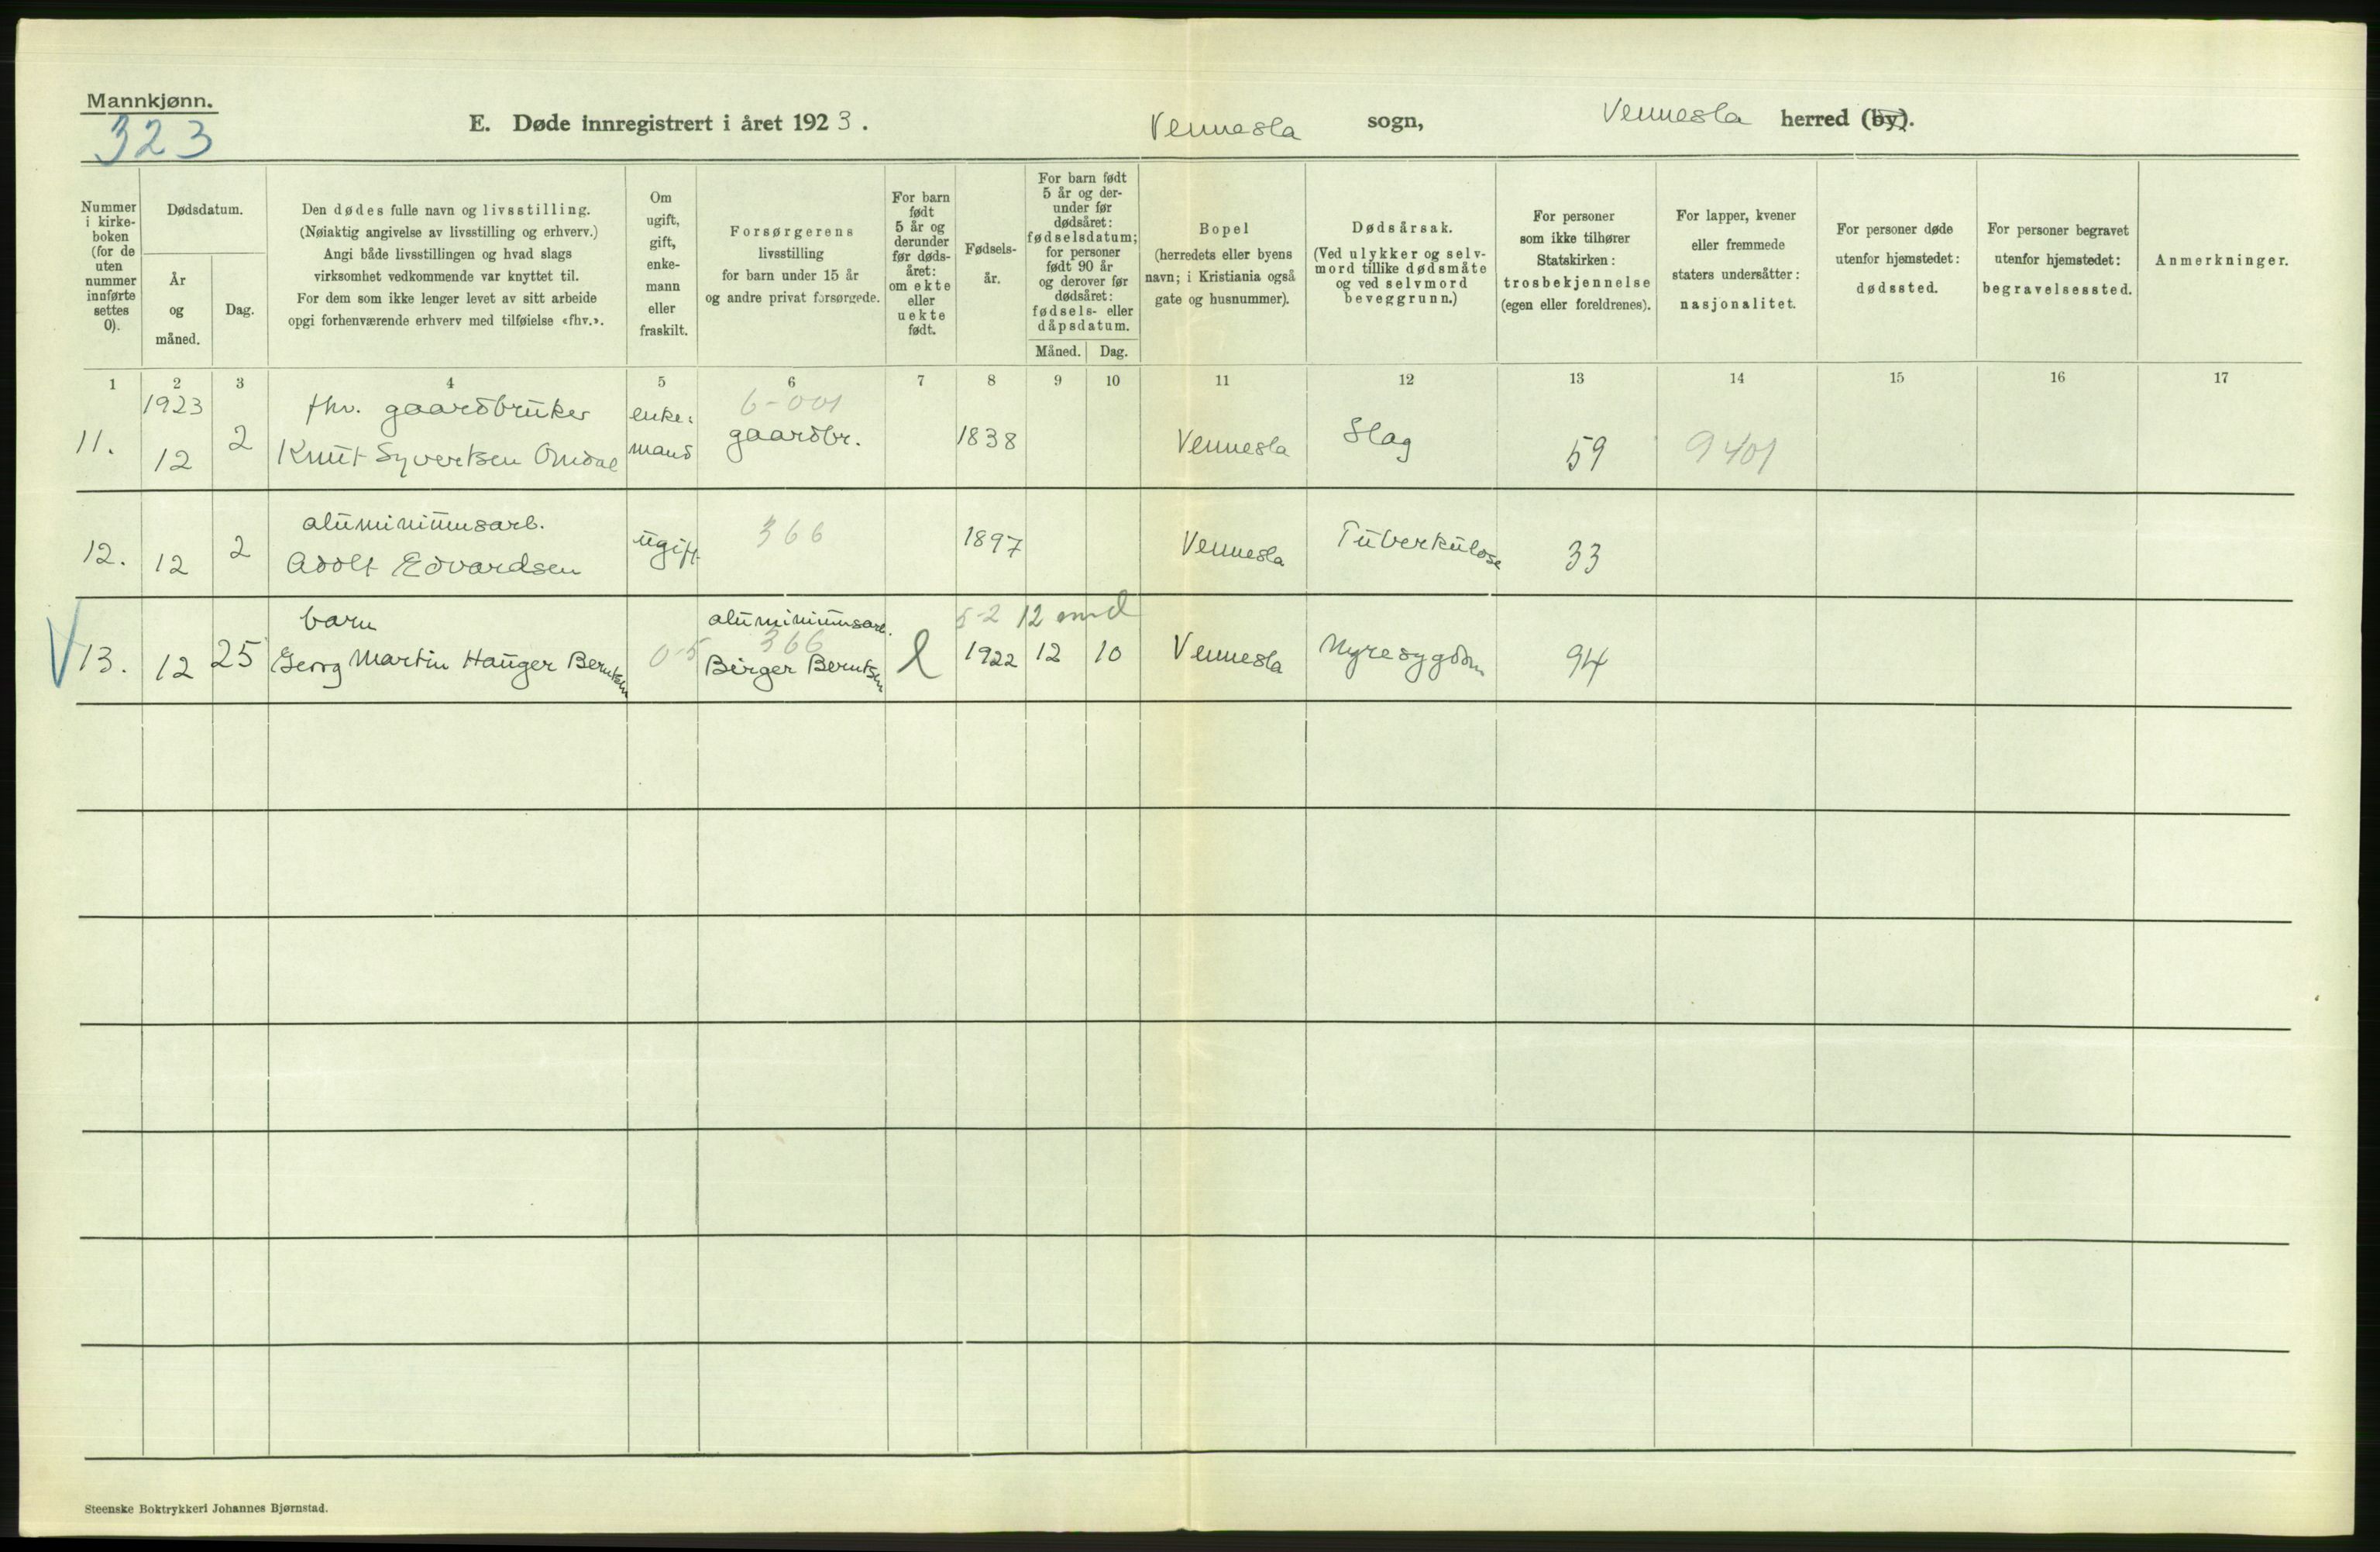 Mannkjønn.
323
E. Døde innregistrert i året 1923.
Vennesla sogn,
Vennesla herred (by).
Nummer i kirke- boken (for de uten nummer innførte settes 0).
Dødsdatum.
År og måned.
Dag.
Den dødes fulle navn og livsstilling.
(Nøiaktig angivelse av livsstilling og erhverv.)
Angi både livsstillingen og hvad slags
virksomhet vedkommende var knyttet til.
For dem som ikke lenger levet av sitt arbeide
opgi forhenværende erhverv med tilføielse «fhv.».
Om ugift, gift, enke- mann eller fraskilt.
Forsørgerens
livsstilling
for barn under 15 år
og andre privat forsørgede.
For barn født 5 år og derunder før døds- året: om ekte eller uekte født.
Fødsels- år.
For barn født 5 år og der- under før dødsåret: fødselsdatum; for personer født 90 år og derover før dødsåret: fødsels- eller dåpsdatum.
Måned. Dag.
Bopel
(herredets eller byens
navn; i Kristiania også
gate og husnummer).
Dødsårsak.
(Ved ulykker og selv-
mord tillike dødsmåte
og ved selvmord
beveggrunn.)
For personer
som ikke tilhører
Statskirken:
trosbekjennelse
(egen eller foreldrenes).
For lapper, kvener
eller fremmede
staters undersåtter:
nasjonalitet.
For personer døde
utenfor hjemstedet:
dødssted.
For personer begravet
utenfor hjemstedet:
begravelsessted.
Anmerkninger.
1 2 3 4 5 6 7 8 9 10 11 12 13 14 15 16 17
1923 fhv. gaardbruker enke- 6-001
11. 12 2 Knut Syvertsen Omdal mand gaardbr. 1838 Vennesla Slag 59 9401
aluminiumsarb.
12. 12 2 Adolf Edvardsen ugift 366 1897 Vennesla Tuberkulose 33
barn aluminiumsarb. 5-2 12 md
366
V 13. 12 25 Georg Martin Hauger Berntsen 0-5 Birger Berntsen 1922 12 10 Vennesla Nyresygdom 94
Steenske Boktrykkeri Johannes Bjørnstad.